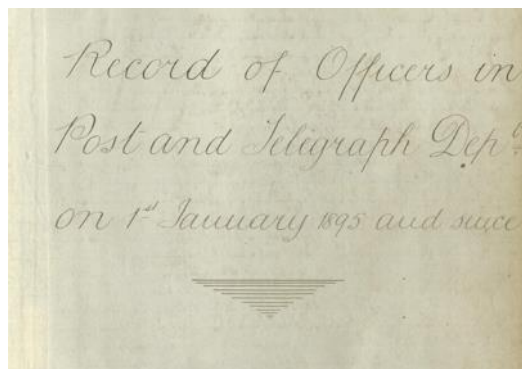 Record of Officers in
Post and Telegraph Dept.
on 1st January 1895 and since